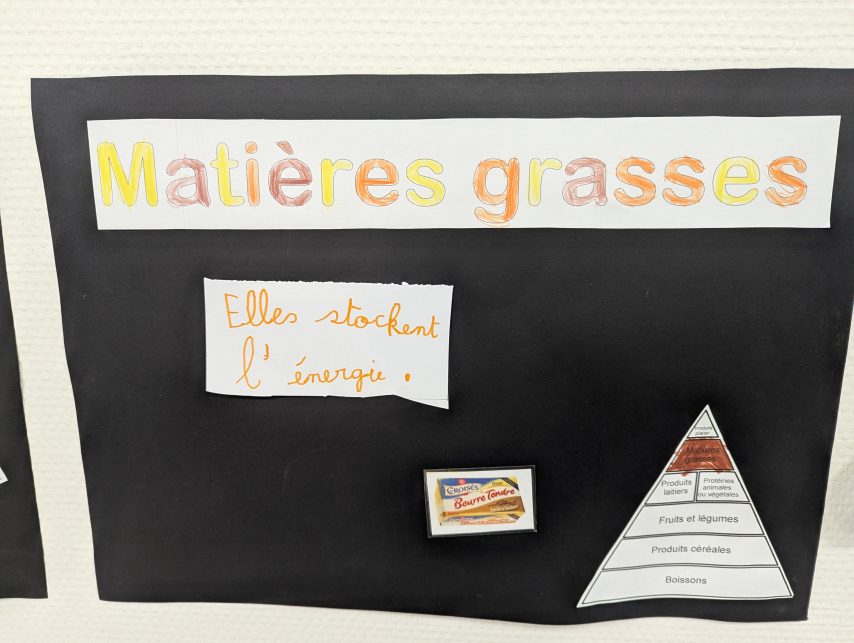 Matières grasses
Elles stockent
l'énergie.
CROISÉS
Doux
Beurre Tendre
Produits
plaisir
Matières
grasses
Produits
laitiers
Protéines
animales
ou végétales
Fruits et légumes
Produits céréales
Boissons